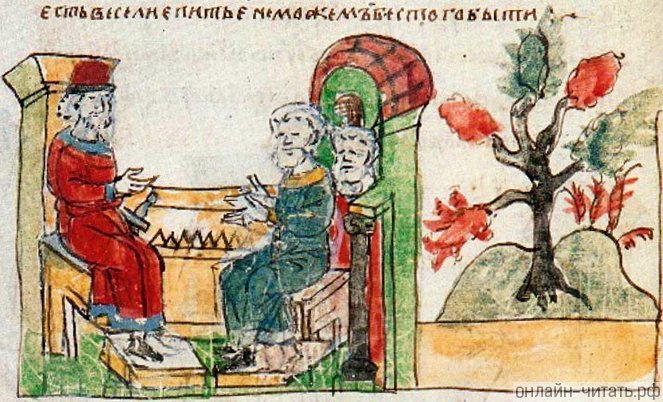 есть веселие питье не можемъ бес того быти
онлайн-читать.рф